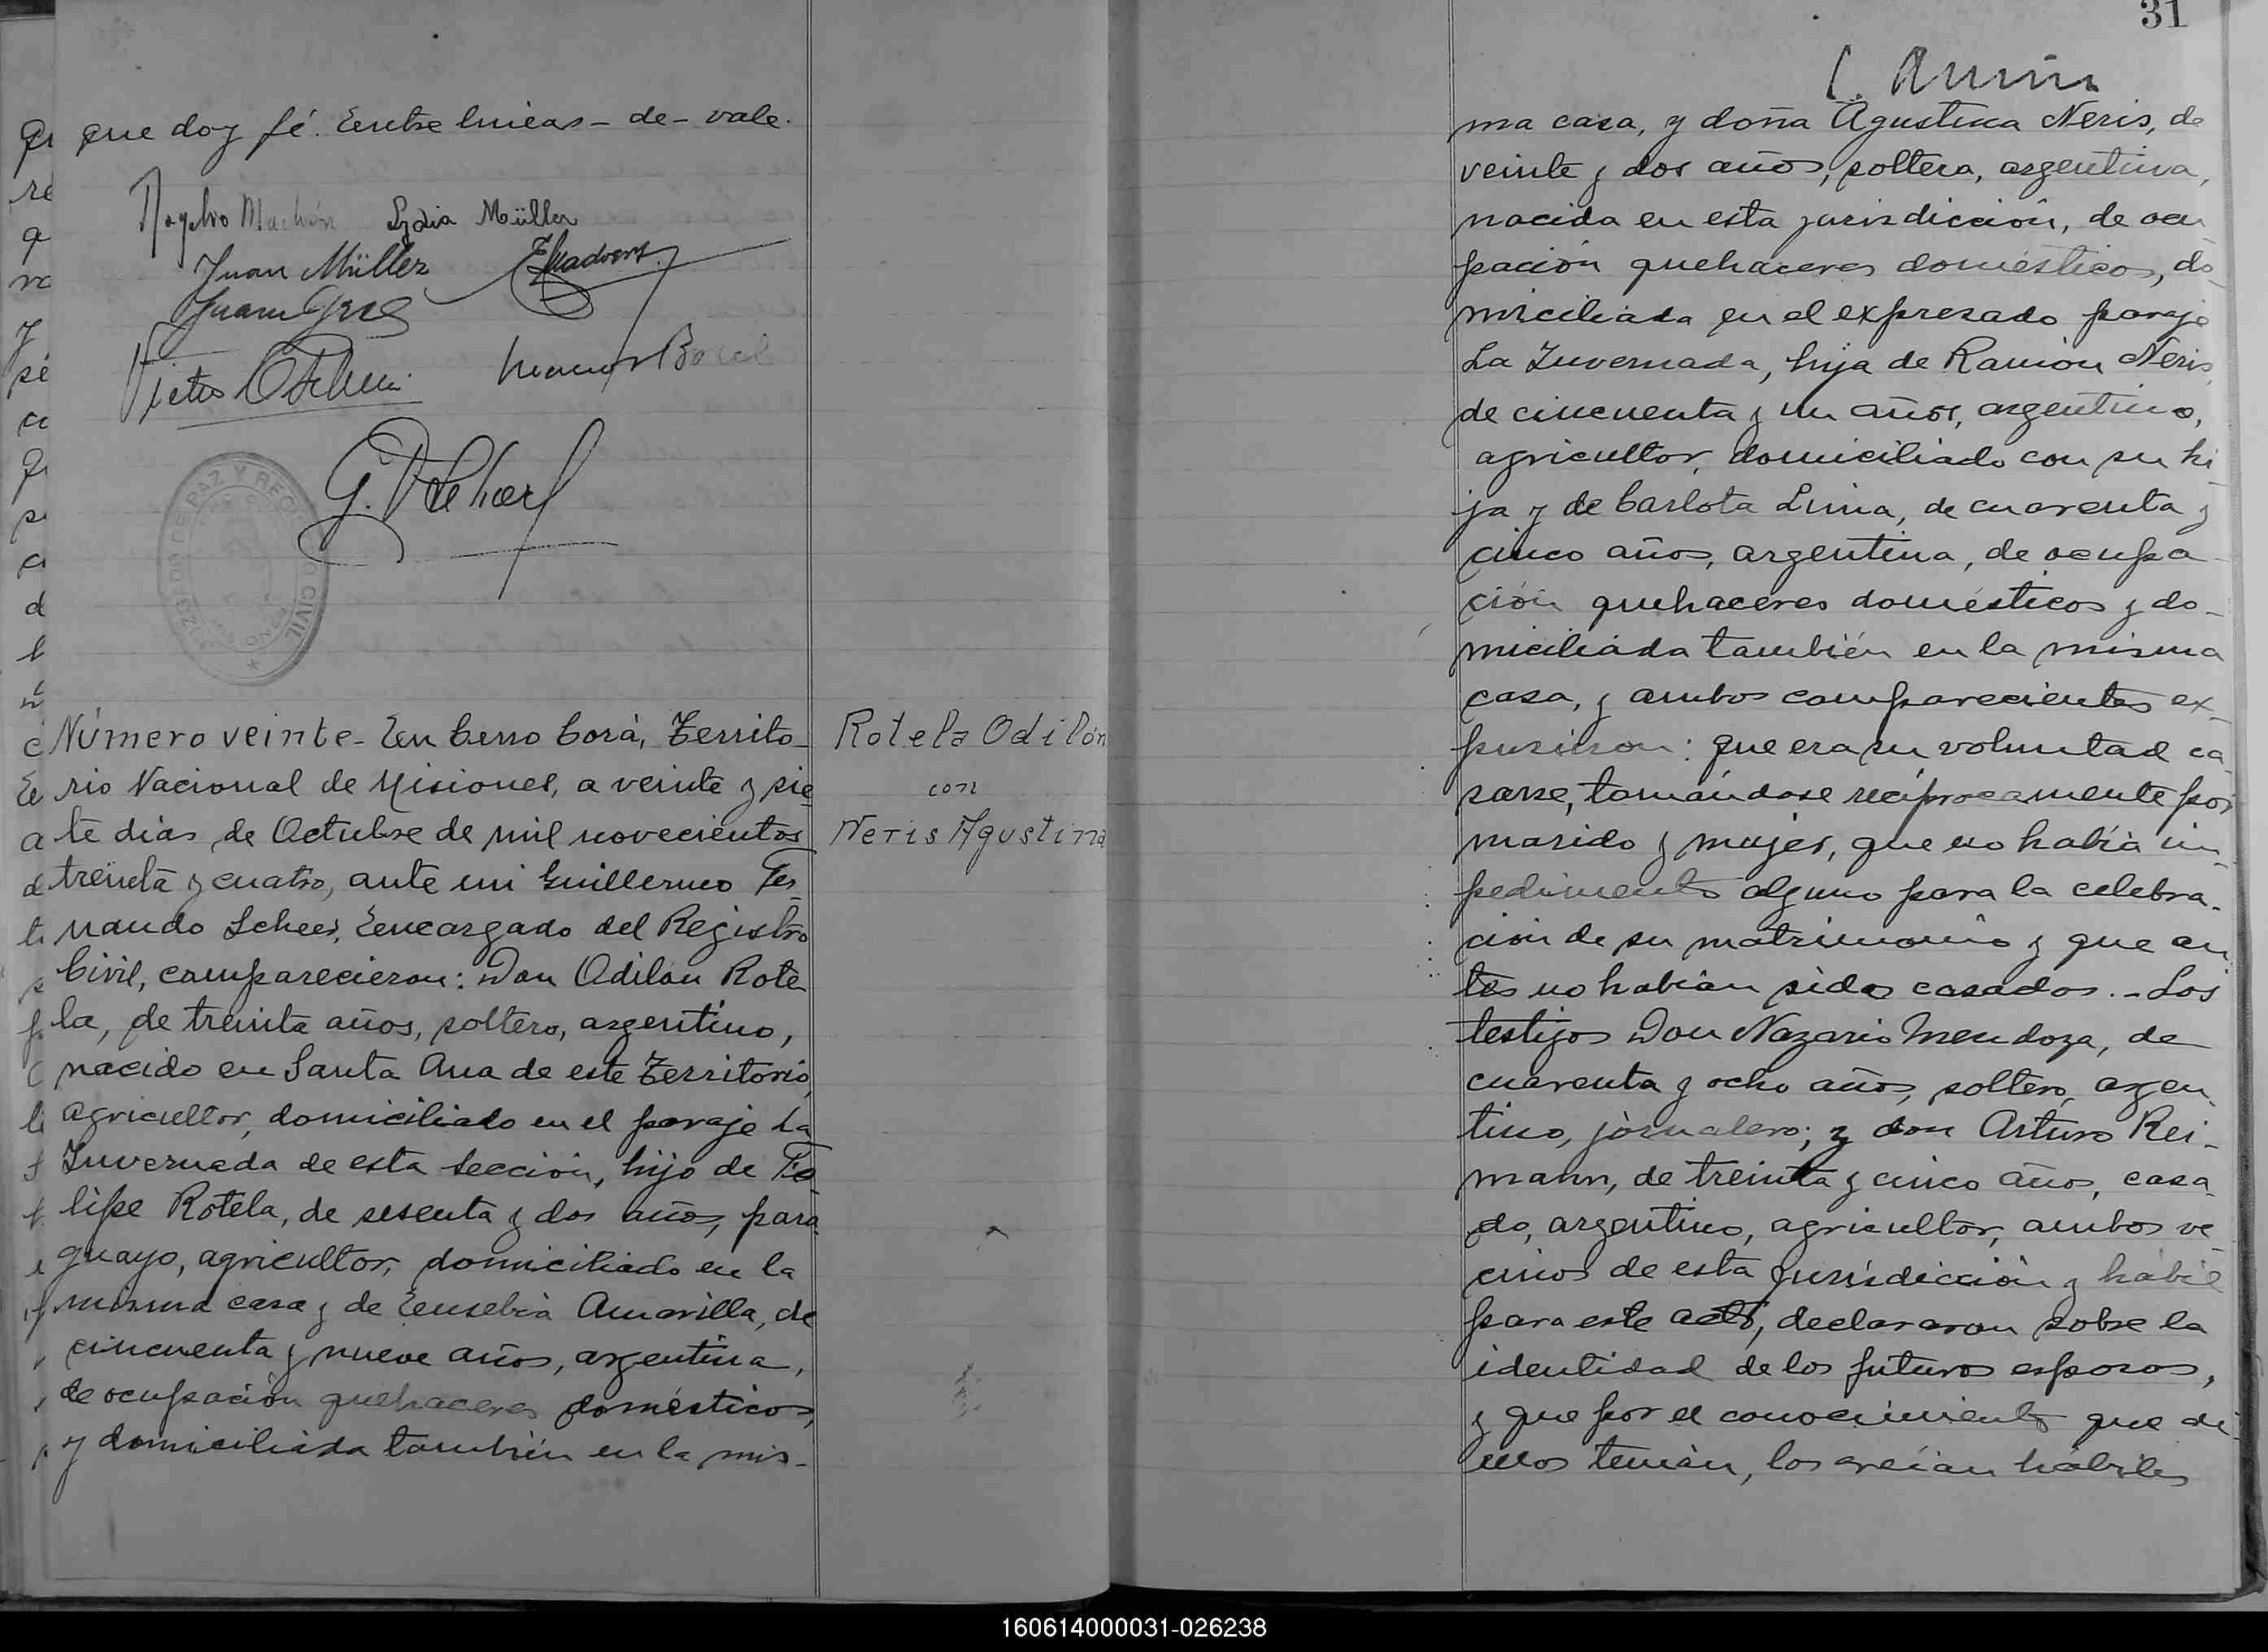 que doy fé. Entre lineas - de - vale.
Lydia Müller
Juan Müller
Número veinte - En Cerro Corá, Territo-
rio Nacional de Misiones, a veinte y sie-
te dias de Octubre de mil novecientos
treinta y cuatro, ante mi Guillermo Fer-
nando Scheer, Encargado del Registro
Civil, comparecieron: Don Odilón Rote
la, de treinta años, soltero, argentino,
nacido en Santa Ana de este Territorio,
agricultor, domiciliado en el paraje La
Invernada de esta Sección, hijo de Fe
lipe Rotela, de sesenta y dos años, para-
guayo, agricultor, domiciliado en la
misma casa y de Eusebia Amarilla, de
cincuenta y nueve años, argentina,
de ocupación quehaceres domésticos,
y domiciliada también en la mis-
Rotela Odilón
con
Neris Agustina
31
ma casa, y doña Agustina Neris, de
veinte y dos años, soltera, argentina,
nacida en esta jurisdicción, de ocu
pación quehaceres domésticos, do-
miciliada en el expresado paraje
La Invernada, hija de Ramón Neris,
de cincuenta y un años, argentino,
agricultor, domiciliado con su hi
ja y de Carlota Lima, de cuarenta y
cinco años, argentina, de ocupa-
ción quehaceres domésticos y do-
miciliada también en la misma
casa, y ambos comparecientes ex-
pusieron: que era su voluntad ca-
sarse, tomándose recíprocamente por
marido y mujer, que no había im-
pedimento alguno para la celebra-
ción de su matrimonio y que an
tes no habían sidos casados. - Los
testigos Don Nazario Mendoza, de
cuarenta y ocho años, soltero, argen-
tino, jornalero; y don Arturo Rei-
mann, de treinta y cinco años, casa-
do, argentino, agricultor, ambos ve
cinos de esta jurisdicción y hábil
para este acto, declararon sobre la
identidad de los futuros esposos,
y que por el conocimiento que de
ellos tenían, los creían hábiles
160614000031-026238